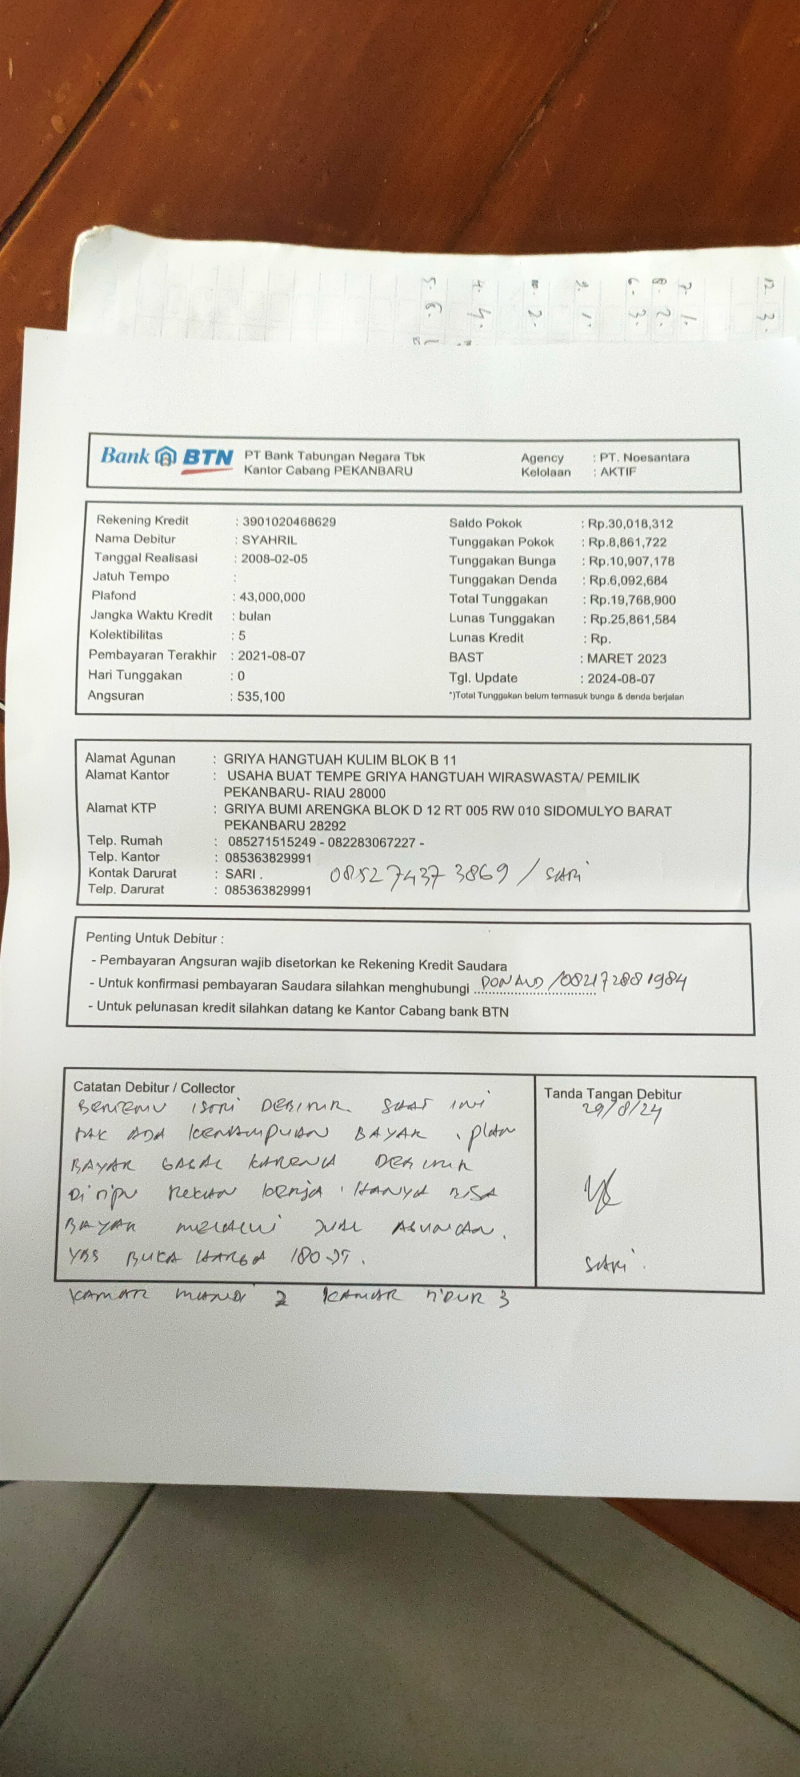 12. 3.
7. 1.
8. 2.
6. 3.
9. 1.
2.
4. 4.
5. 6.
Bank BTN PT Bank Tabungan Negara Tbk Agency : PT. Noesantara
Kantor Cabang PEKANBARU Kelolaan : AKTIF
Rekening Kredit : 3901020468629 Saldo Pokok : Rp.30,018,312
Nama Debitur : SYAHRIL Tunggakan Pokok : Rp.8,861,722
Tanggal Realisasi : 2008-02-05 Tunggakan Bunga : Rp.10,907,178
Jatuh Tempo : Tunggakan Denda : Rp.6,092,684
Plafond : 43,000,000 Total Tunggakan : Rp.19,768,900
Jangka Waktu Kredit : bulan Lunas Tunggakan : Rp.25,861,584
Kolektibilitas : 5 Lunas Kredit : Rp.
Pembayaran Terakhir : 2021-08-07 BAST : MARET 2023
Hari Tunggakan : 0 Tgl. Update : 2024-08-07
Angsuran : 535,100 *)Total Tunggakan belum termasuk bunga & denda berjalan
Alamat Agunan : GRIYA HANGTUAH KULIM BLOK B 11
Alamat Kantor : USAHA BUAT TEMPE GRIYA HANGTUAH WIRASWASTA/ PEMILIK
PEKANBARU- RIAU 28000
Alamat KTP : GRIYA BUMI ARENGKA BLOK D 12 RT 005 RW 010 SIDOMULYO BARAT
PEKANBARU 28292
Telp. Rumah : 085271515249 - 082283067227 -
Telp. Kantor : 085363829991
Kontak Darurat : SARI . 085274373869 / SARI
Telp. Darurat : 085363829991
Penting Untuk Debitur :
- Pembayaran Angsuran wajib disetorkan ke Rekening Kredit Saudara
- Untuk konfirmasi pembayaran Saudara silahkan menghubungi DONALD /082172881984
- Untuk pelunasan kredit silahkan datang ke Kantor Cabang bank BTN
Catatan Debitur / Collector Tanda Tangan Debitur
BERTEMU ISTRI DEBITUR. SAAT INI 29/8/24
TAK ADA KEMAMPUAN BAYAR. plan
BAYAR GAGAL KARENA DEBITUR
DiTIPU REKAN kerja. HANYA BISA
BAYAR MELALUI JUAL AGUNAN.
YBS BUKA HARGA 180 JT. SARI
KAMAR MANDI 2 KAMAR TIDUR 3